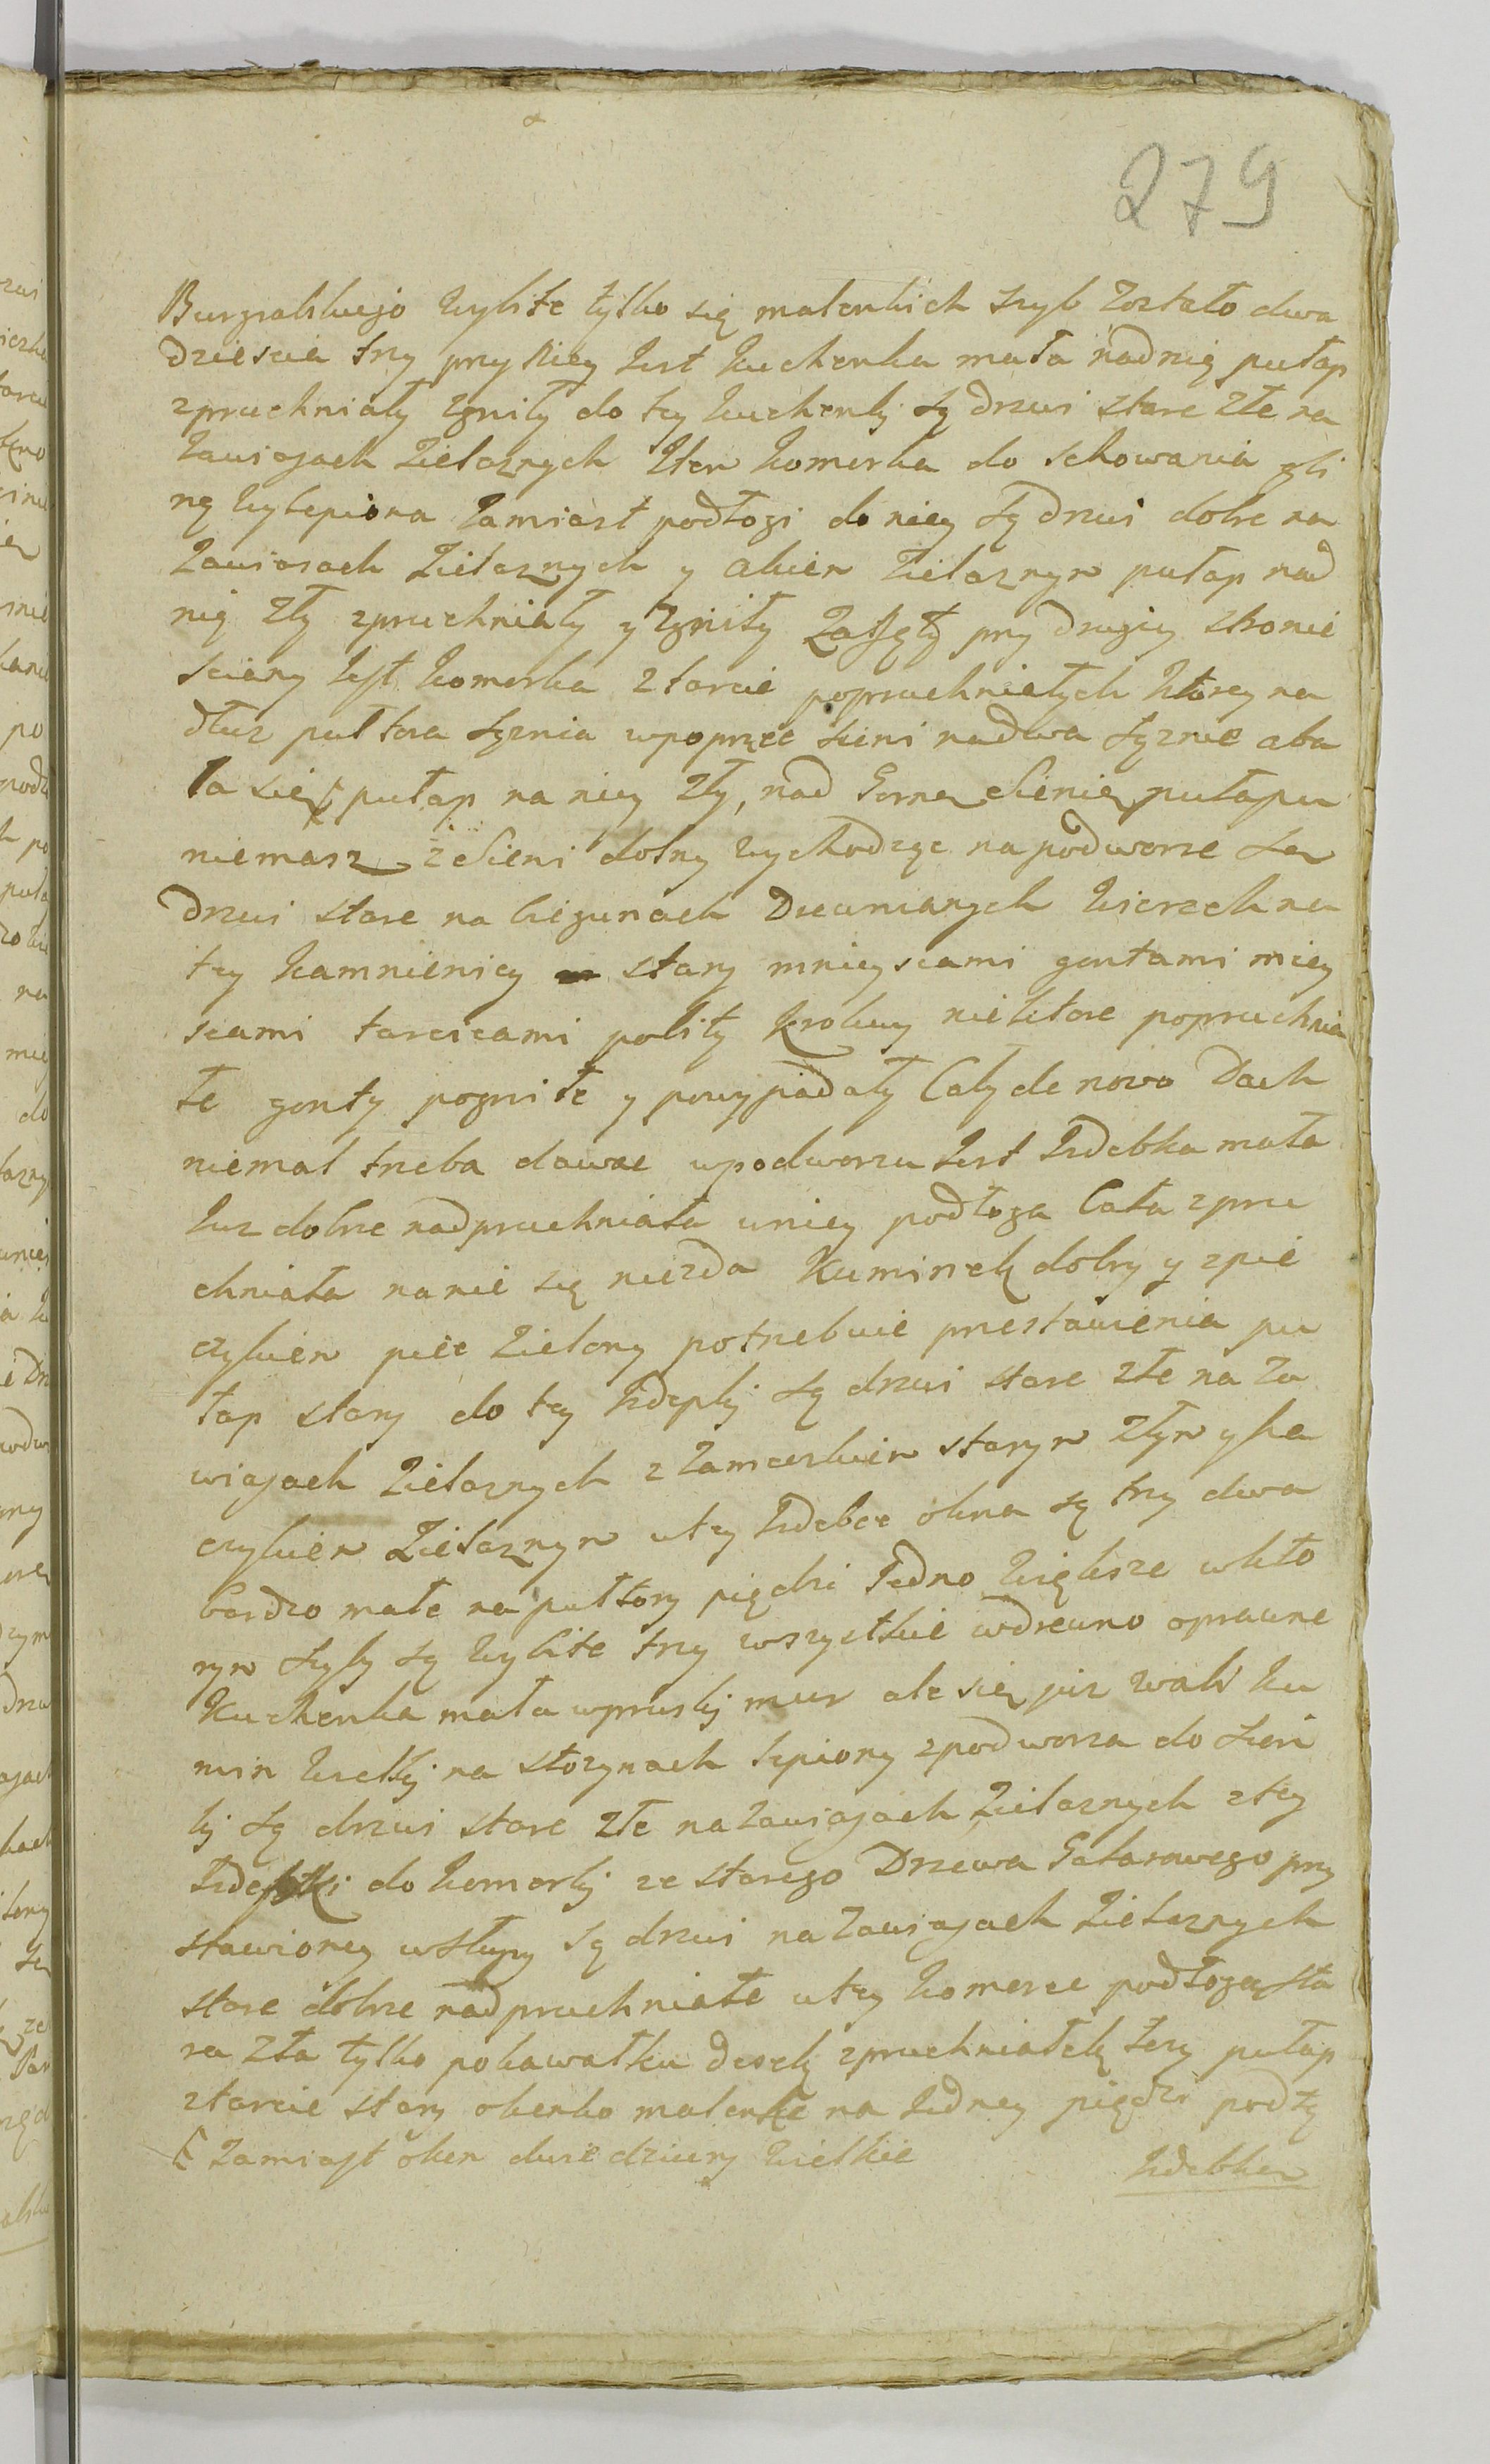 279
Burgrabskiego wybite tylko się malenkich szyb zostało dwa
dziescia trzy przy Niey Iest kuchenka mała nad nią pułap
zpruchniały zgniły do tey kuchenki są drzwi stare złe na
zawiasach żielaznych Item komorka do schowania gli
ną wylepiona zamiast podłogi do niey są drzwi dobre na
zawiasach żielaznych y skublem żielaznym pułap nad
nią zły zpruchniały y zgniły przy drugiey stronie
sciany Iest komorka z tarcic popruchniełych ktorey na
dłuz pułtora sążnia wpoprzec sieni nadwa sążnie oba
la się pułap na niey zły, nad Gorną Sienią pułapu
niemasz z Sieni dolny wychodząc na podworze są
drzwi stare na biegunach Drewnianych wierzch na
tey kamnienicy stary mnieyscami gontami miey
scami tarcicami pobity krokwy niektore popruchnia
łe gonty pogniłe y powypadały Cały de novo Dach
niemal trzeba dawac w podworzu Iest Izdebka mała
Iuz dobrze nadpruchniała w niey podłoga Cała zpru
chniała na nic się niezda Kuminek dobry y zpie
cykiem piec zielony potrzebuie przestawienia pu
łap stary do tey Izdepki są drzwi stare złe na za
wiasach żielaznych z zameczkiem starym złym y ha
czykiem żielaznym w tey Izdebce okna są trzy dwa
bardzo małe na pułtory piędzi Iedno większe w kto
rym szyby są wybite trzy wszystkie w drewno oprawne
Kuchenka mała w pruski mur ale się juz wali ku
min wielki na słozynach lepiony z podworza do sien
ki są drzwi stare złe na zawiasach żielaznych z tey
Izdepki do komorki ze starego Drzewa Galarowego przy
stawioney w słupy są drzwi na zawiasach żielaznych
stare dobrze nadpruchniałe w tey komorce podłoga sta
ra zła tylko po kawałku desek zpruchniałch lezy pułap
z tarcic stary okenko malenkie na Iedney piędzi pod tą
zamiast okien dwie dziury wielkie
Izdebką